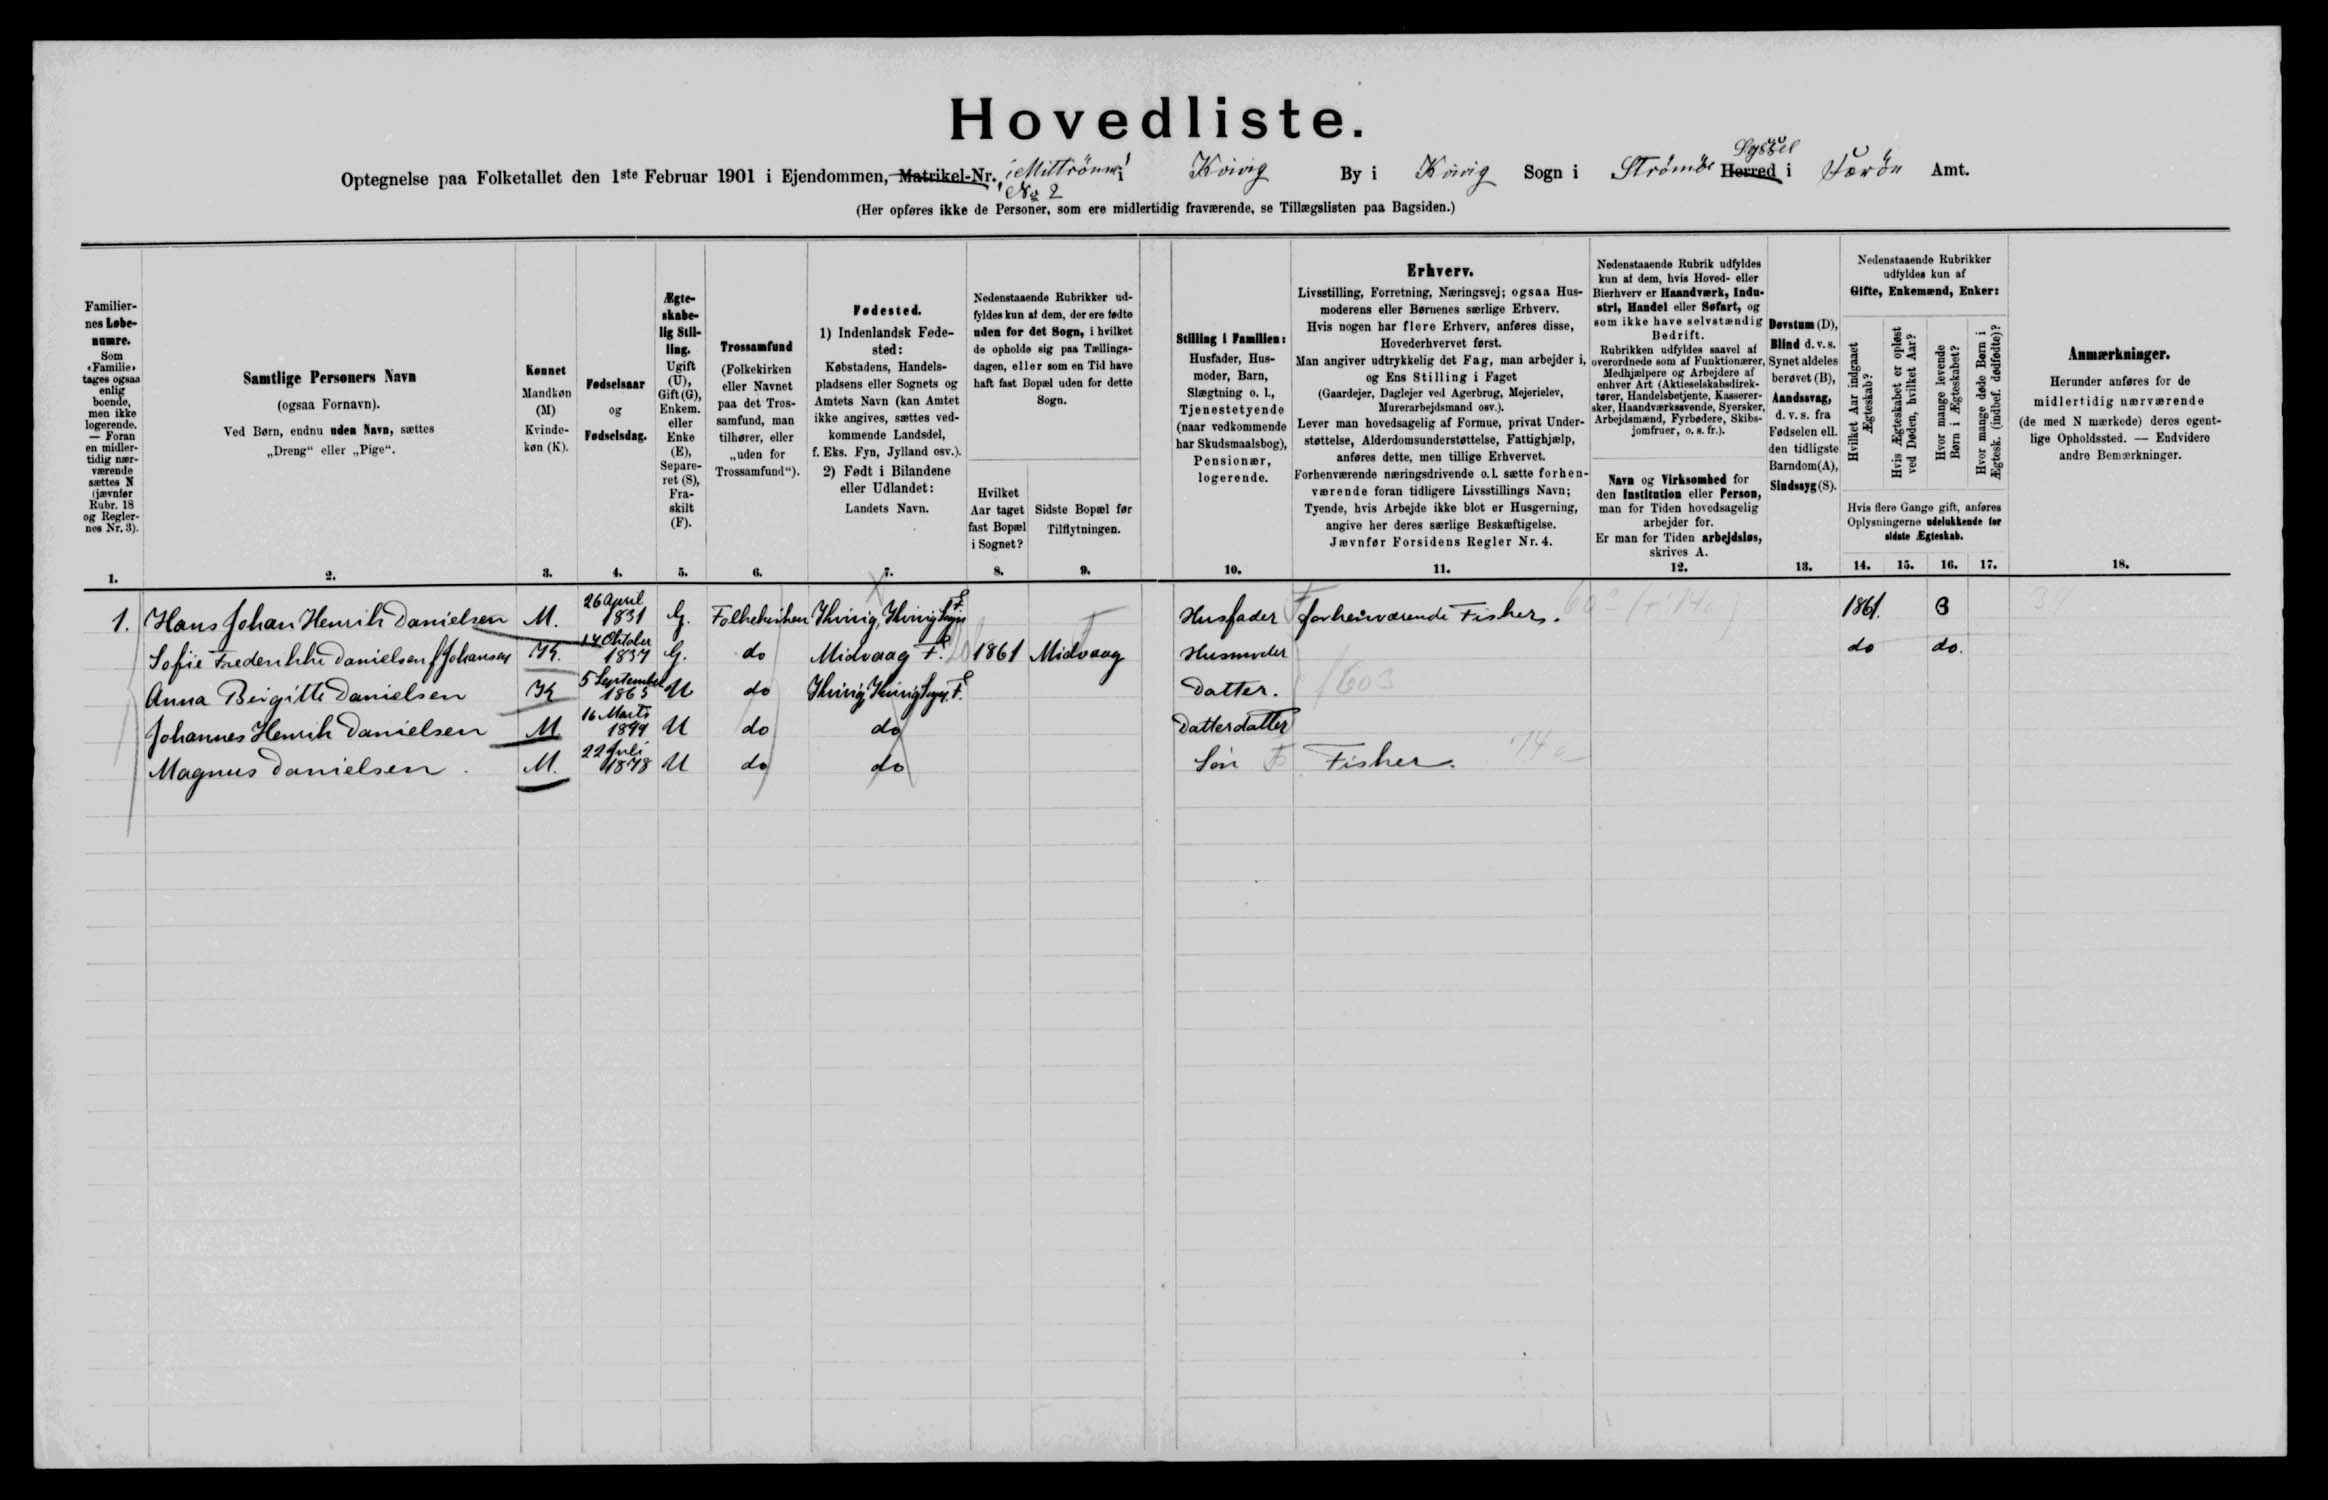 Hovedliste.
Optegnelse paa Folketallet den 1ste Februar 1901 i Ejendommen, Matrikel-Nr. i Mittrönne No 2 i Kvivig By i Kvivig Sogn i Strömöe Herred Syssel i Færön Amt.
(Her opføres ikke de Personer, som ere midlertidig fraværende, se Tillægslisten paa Bagsiden.)
Familier-
nes Løbe-
numre.
Som
«Familie»
tages ogsaa
enlig
boende,
men ikke
logerende.
— Foran
en midler-
tidig nær-
værende
sættes N
(jævnfør
Rubr. 18
og Regler-
nes Nr. 3).
1.
Samtlige Personers Navn
(ogsaa Fornavn).
Ved Børn, endnu uden Navn, sættes
„Dreng“ eller „Pige“.
2.
Kønnet
Mandkøn
(M)
Kvinde-
køn (K).
3.
Fødselsaar
og
Fødselsdag.
4.
Ægte-
skabe-
lig Stil-
ling.
Ugift
(U),
Gift (G),
Enkem.
eller
Enke
(E),
Separe-
ret (S),
Fra-
skilt
(F).
5.
Trossamfund
(Folkekirken
eller Navnet
paa det Tros-
samfund, man
tilhører, eller
„uden for
Trossamfund“).
6.
Fødested.
1) Indenlandsk Føde-
sted:
Købstadens, Handels-
pladsens eller Sognets og
Amtets Navn (kan Amtet
ikke angives, sættes ved-
kommende Landsdel,
f. Eks. Fyn, Jylland osv.).
2) Født i Bilandene
eller Udlandet:
Landets Navn.
7.
Nedenstaaende Rubrikker ud-
fyldes kun af dem, der ere fødte
uden for det Sogn, i hvilket
de opholde sig paa Tællings-
dagen, eller som en Tid have
haft fast Bopæl uden for dette
Sogn.
Hvilket
Aar taget
fast Bopæl
i Sognet?
8.
Sidste Bopæl før
Tilflytningen.
9.
Stilling i Familien:
Husfader, Hus-
moder, Barn,
Slægtning o. l.,
Tjenestetyende
(naar vedkommende
har Skudsmaalsbog),
Pensionær,
logerende.
10.
Erhverv.
Livsstilling, Forretning, Næringsvej; ogsaa Hus-
moderens eller Børnenes særlige Erhverv.
Hvis nogen har flere Erhverv, anføres disse,
Hovederhvervet først.
Man angiver udtrykkelig det Fag, man arbejder i,
og Ens Stilling i Faget
(Gaardejer, Daglejer ved Agerbrug, Mejerielev,
Murerarbejdsmand osv.).
Lever man hovedsagelig af Formue, privat Under-
støttelse, Alderdomsunderstøttelse, Fattighjælp,
anføres dette, men tillige Erhvervet.
Forhenværende næringsdrivende o. l. sætte forhen-
værende foran tidligere Livsstillings Navn;
Tyende, hvis Arbejde ikke blot er Husgerning,
angive her deres særlige Beskæftigelse.
Jævnfør Forsidens Regler Nr. 4.
11.
Nedenstaaende Rubrik udfyldes
kun af dem, hvis Hoved- eller
Bierhverv er Haandværk, Indu-
stri, Handel eller Søfart, og
som ikke have selvstændig
Bedrift.
Rubrikken udfyldes saavel af
overordnede som af Funktionærer,
Medhjælpere og Arbejdere af
enhver Art (Aktieselskabsdirek-
tører, Handelsbetjente, Kasserer-
sker, Haandværkssvende, Syersker,
Arbejdsmænd, Fyrbødere, Skibs-
jomfruer, o. s. fr.).
Navn og Virksomhed for
den Institution eller Person,
man for Tiden hovedsagelig
arbejder for.
Er man for Tiden arbejdsløs,
skrives A.
12.
Døvstum (D),
Blind d. v. s.
Synet aldeles
berøvet (B),
Aandssvag,
d. v. s. fra
Fødselen ell.
den tidligste
Barndom (A),
Sindssyg (S).
13.
Nedenstaaende Rubrikker
udfyldes kun af
Gifte, Enkemænd, Enker:
Hvilket Aar indgaaet
Ægteskab?
Hvis Ægteskabet er opløst
ved Døden, hvilket Aar?
Hvor mange levende
Børn i Ægteskabet?
Hvor mange døde Børn i
Ægtesk. (indbef. dødfødte)?
Hvis flere Gange gift, anføres
Oplysningerne udelukkende for
sidste Ægteskab.
14. 15. 16. 17.
Anmærkninger.
Herunder anføres for de
midlertidig nærværende
(de med N mærkede) deres egent-
lige Opholdssted. — Endvidere
andre Bemærkninger.
18.
1. Hans Johan Henrik Danielsen M. 26 April 1831 G. Folkekirken Kvivig, Kvivig Sogn F. Husfader forhenværende Fisker. 1861. 3
Sofie Frederikke Danielsen f Johansen K. 14 Oktober 1837 G. do Midvaag F. 1861 Midvaag Husmoder do do.
Anna Birgitte Danielsen K 5 September 1865 U do Kvivig, Kvivig Sogn. F. Datter.
Johannes Henrik Danielsen M 16 Marts 1899 U do do Datterdatter
Magnus Danielsen. M. 22 Juli 1878 U do do Sön Fisker.